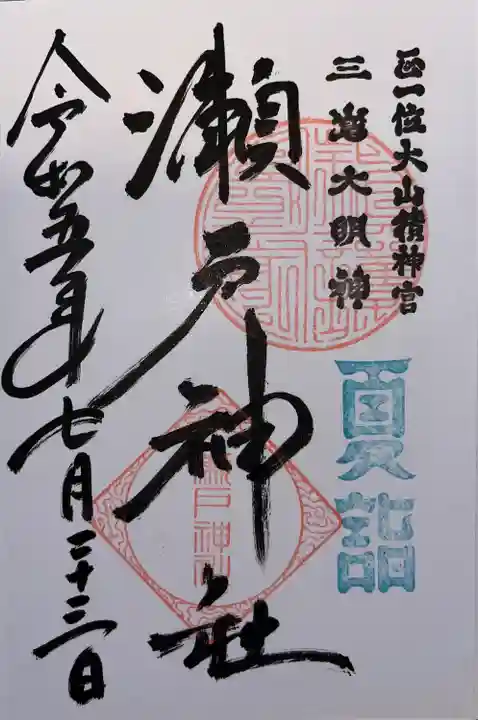 正一位大山積神宮
三嶌大明神
夏詣
瀬戸神社
瀬戸神社
令和五年七月二十三日